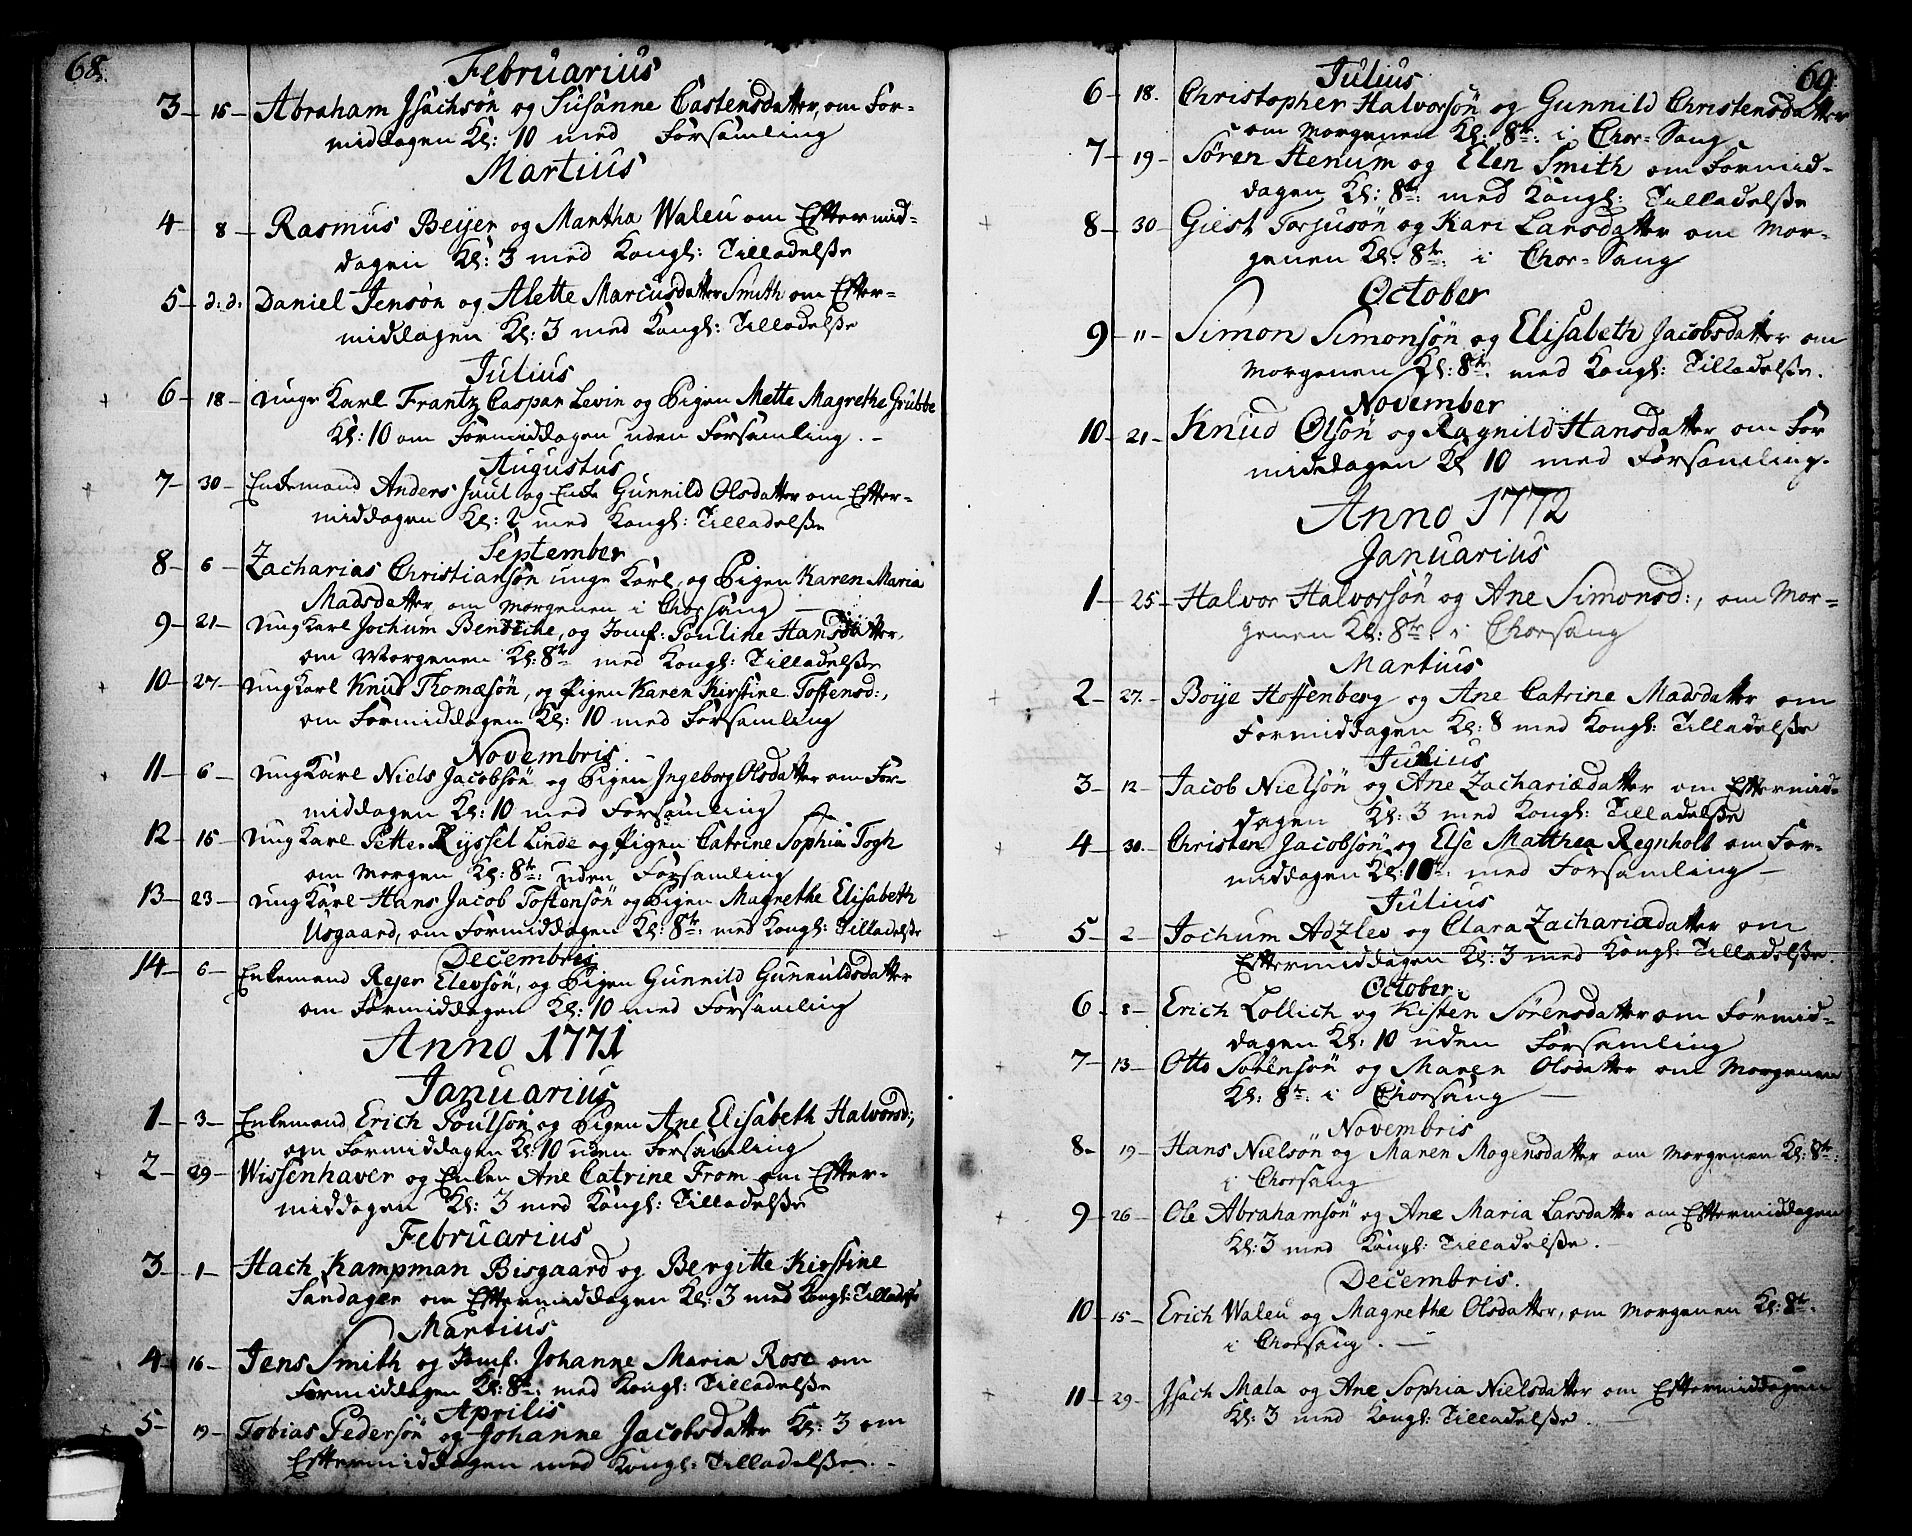 68.
Februarius
3 – 15 – Abraham Jsachsøn og Susanne Castensdatter, om For-
middagen Kl: 10 med Forsamling
Martius
4 – 8 – Rasmus Beyer og Martha Waleu om Eftermid-
dagen Kl: 3 med Kongl: Tilladelsße
5 – d: d: Daniel Jensøn og Alette Marcusdatter Smith om Efter-
middagen Kl: 3 med Kongl: Tilladelsße
Julius
6 – 18 – unge Karl Frantz Caspar Levin og Pigen Mette Magrethe Grubbe
Kl: 10 om Formiddagen uden Forsamling. –
Augustus
7 – 30 – Enkemand Anders Juul og Enke Gunnild Olsdatter om Efter-
middagen Kl: 2 med Kongl: Tilladelsße
September
8 – 6 – Zacharias Christiansøn unge Karl, og Pigen Karen Maria
Madsdatter om Morgenen i Chorsang –
9 – 21 – ungKarl Jochum , og Jomf: Pouline Hansdatter,
om Morgenen Kl: 8te med Kongl: Tilladelsße
10 – 27 – ungKarl Knud Thomæsøn, og Pigen Karen Kirstine Toffensd:,
om Formiddagen Kl: 10 med Forsamling
Novembris
11 – 6 – ungKarl Niels Jacobsøn og Pigen Ingeborg Olsdatter om For-
middagen Kl: 10 med Forsamling
12 – 15 – ungKarl Petter Ryssel Linde og Pigen Catrine Sophia Togh
om Morgen Kl: 8te: uden Forsamling
13 – 23 – ungKarl Hans Jacob Toftensøn og Pigen Magrethe Elisabeth
Usgaard, om Formiddagen Kl: 8te: med Kongl: Tilladelsße
Decembris
14 – 6 – Enkemand Rejer Elevsøn, og Pigen Gunnild Gunnuldsdatter
om Formiddagen Kl: 10 med Forsamling
Anno 1771
Januarius
1 – 3 – Enkemand Erich Poulsøn og Pigen Ane Elisabeth Halvorsd:,
om Formiddagen Kl: 10 uden Forsamling
2 – 29 – Wissenhaver og Enken Ane Catrine From om Efter-
middagen Kl: 3 med Kongl: Tilladelsße
Februarius
3 – 1 – Hach Kampman Bisgaard og Bergitte Kirstine
Sandager om Eftermiddagen Kl: 3 med Kongl: Tilladelsße
Martius
4 – 16 – Jens Smith og Jomf. Johanne Maria Rose om
Formiddagen Kl: 8te: med Kongl: Tilladelsße
Aprilis
5 – 19 – Tobias Pedersøn og Johanne Jacobsdatter Kl: 3 om
Eftermiddagen med Kongl: Tilladelsße. –
69.
Julius
6 – 18. Christopher Halvorsøn og Gunnild Christensdatter
om Morgenen Kl: 8te: i Chor-Sang
7 – 19 – Søren Stenum og Elen Smith om Formid-
dagen Kl: 8te: med Kongl: Tilladelsße
8 – 30 – Giest Torjusøn og Kari Larsdatter om Mor-
genen Kl: 8te: i Chor-Sang
October
9 – 11 – Simon Simonsøn og Elisabeth Jacobsdatter om
Morgenen Kl: 8te: med Kongl: Tilladelsße.
November
10 – 21 – Knud Olsøn og Ragnild Hansdatter om For
middagen Kl 10 med Forsamling.
Anno 1772
Januarius
1 – 25 – Halvor Halvorsøn og Ane Simonsd:, om Mor-
genen Kl: 8te: i Chorsang
Martius
2 – 27. – Boije Hoffenberg og Ane Catrine Madsdatter om
Formiddagen Kl: 8 med Kongl: Tilladelsße
Julius
3 – 12 – Jacob Nielsøn og Ane Zachariædatter om Eftermid-
dagen Kl: 3 med Kongl: Tilladelsße
4 – 30 – Christen Jacobsøn og Else Matthea Regnholt om For-
middagen Kl: 10te: med Forsamling –
Julius
5 – 2 – Jochum Adzlev og Clara Zachariædatter om
Eftermiddagen Kl: 3 med Kongl: Tilladelsße.
October.
6 – 8 – Erich Lollich og Kisten Sørensdatter om Formid-
dagen Kl: 10 uden Forsamling
7 – 13 – Otto Sørensøn og Maren Olsdatter om Morgenen
Kl: 8te: i Chorsang –
Novembris
8 – 19 – Hans Nielsøn og Maren Mogensdatter om Morgenen Kl: 8te:
i Chorsang
9 – 26 – Ole Abrahamsøn og Ane Maria Larsdatter om Eftermiddagen
Kl: 3 med Kongl: Tilladelsße. –
Decembris.
10 – 15 – Erich Waleu og Magrethe Olsdatter, om Morgenen Kl: 8te:
i Chorsang. –
11 – 29 – Jsach Mala og Ane Sophia Nielsdatter om Eftermiddagen
Kl: 3 med Kongl: Tilladelsße. –